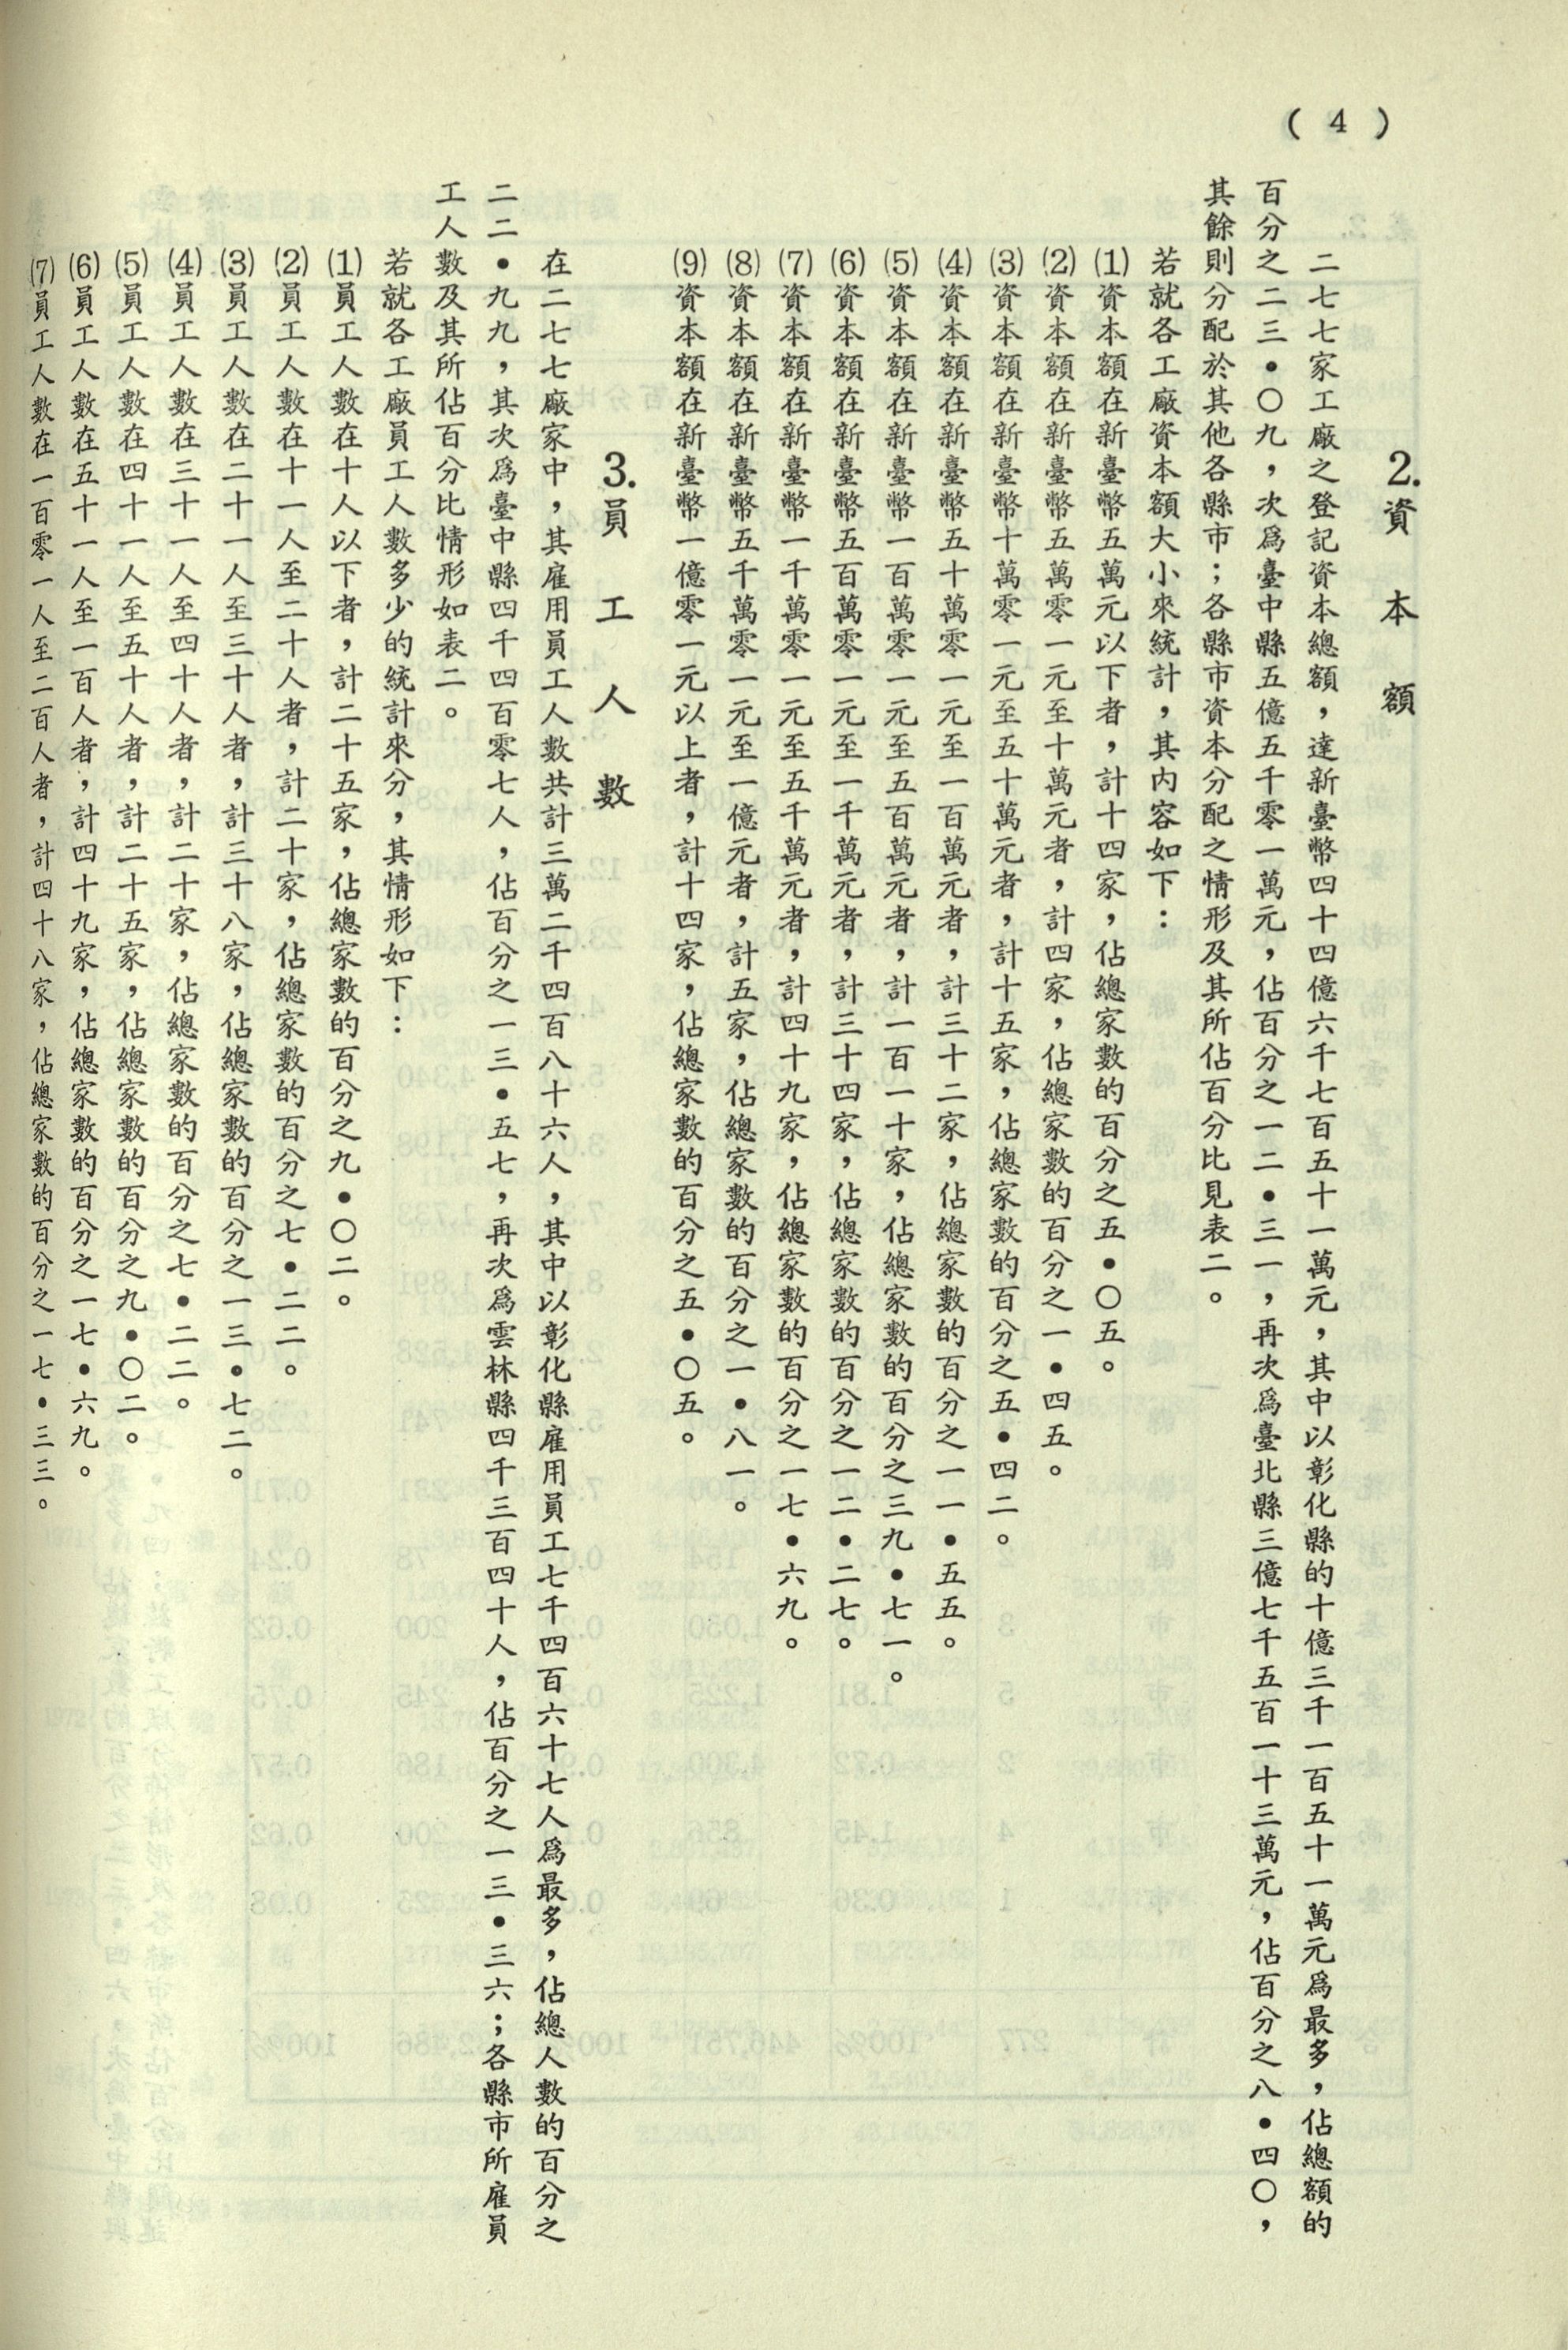 ( 4 )
2.資本額
二七七家工廠之登記資本總額，達新臺幣四十四億六千七百五十一萬元，其中以彰化縣的十億三千一百五十一萬元爲最多，佔總額的
百分之二三•〇九，次爲臺中縣五億五千零一萬元，佔百分之一二•三一，再次爲臺北縣三億七千五百一十三萬元，佔百分之八•四〇，
其餘則分配於其他各縣市；各縣市資本分配之情形及其所佔百分比見表二。
若就各工廠資本額大小來統計，其內容如下：
(1)資本額在新臺幣五萬元以下者，計十四家，佔總家數的百分之五•〇五。
(2)資本額在新臺幣五萬零一元至十萬元者，計四家，佔總家數的百分之一•四五。
(3)資本額在新臺幣十萬零一元至五十萬元者，計十五家，佔總家數的百分之五•四二。
(4)資本額在新臺幣五十萬零一元至一百萬元者，計三十二家，佔總家數的百分之一一•五五。
(5)資本額在新臺幣一百萬零一元至五百萬元者，計一百一十家，佔總家數的百分之三九•七一。
(6)資本額在新臺幣五百萬零一元至一千萬元者，計三十四家，佔總家數的百分之一二•二七。
(7)資本額在新臺幣一千萬零一元至五千萬元者，計四十九家，佔總家數的百分之一七•六九。
(8)資本額在新臺幣五千萬零一元至一億元者，計五家，佔總家數的百分之一•八一。
(9)資本額在新臺幣一億零一元以上者，計十四家，佔總家數的百分之五•〇五。
3.員工人數
在二七七廠家中，其雇用員工人數共計三萬二千四百八十六人，其中以彰化縣雇用員工七千四百六十七人爲最多，佔總人數的百分之
二二•九九，其次爲臺中縣四千四百零七人，佔百分之一三•五七，再次爲雲林縣四千三百四十人，佔百分之一三•三六；各縣市所雇員
工人數及其所佔百分比情形如表二。
若就各工廠員工人數多少的統計來分，其情形如下：
(1)員工人數在十人以下者，計二十五家，佔總家數的百分之九•〇二。
(2)員工人數在十一人至二十人者，計二十家，佔總家數的百分之七•二二。
(3)員工人數在二十一人至三十人者，計三十八家，佔總家數的百分之一三•七二。
(4)員工人數在三十一人至四十人者，計二十家，佔總家數的百分之七•二二。
(5)員工人數在四十一人至五十人者，計二十五家，佔總家數的百分之九•〇二。
(6)員工人數在五十一人至一百人者，計四十九家，佔總家數的百分之一七•六九。
(7)員工人數在一百零一人至二百人者，計四十八家，佔總家數的百分之一七•三三。